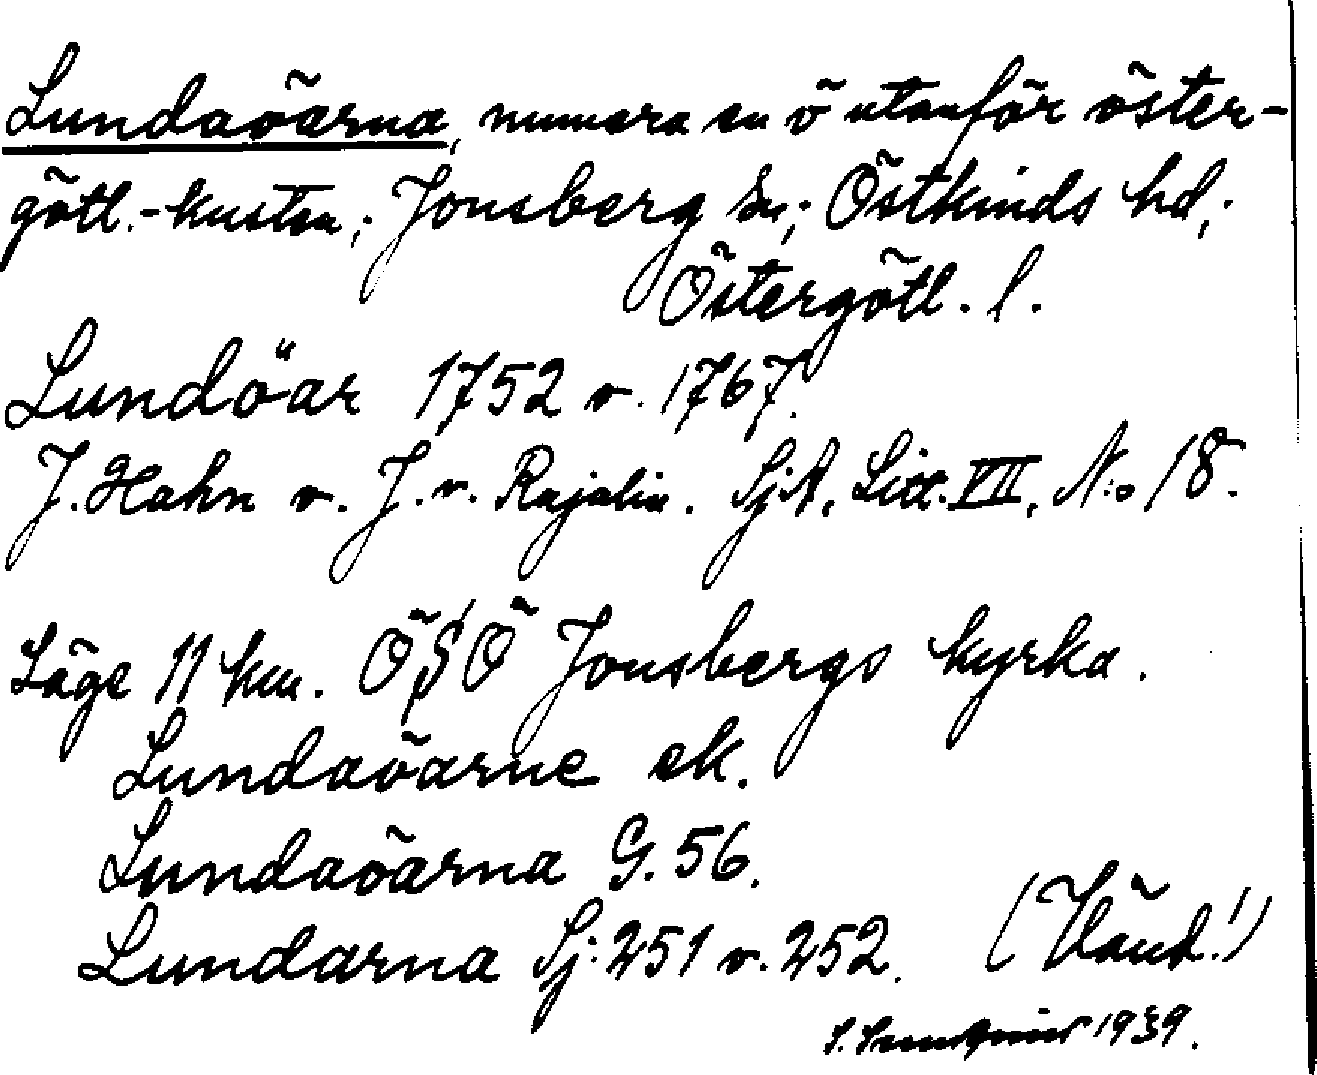 Lundaöarna, numera en ö utanför öster-
götl.-kusten; Jonsberg sn; Östkinds hd;
Östergötl. l.
Lundöar 1752 o. 1767.
J. Hahn o. J. v. Rajalin. SjA, Litt. VII, N:o 18.
Läge 11 km. ÖSÖ Jonsbergs kyrka.
Lundaöarne ek.
Lundaöarna G. 56.
Lundarna Sj: 251 o. 252. (Vänd!)
S. 1939.